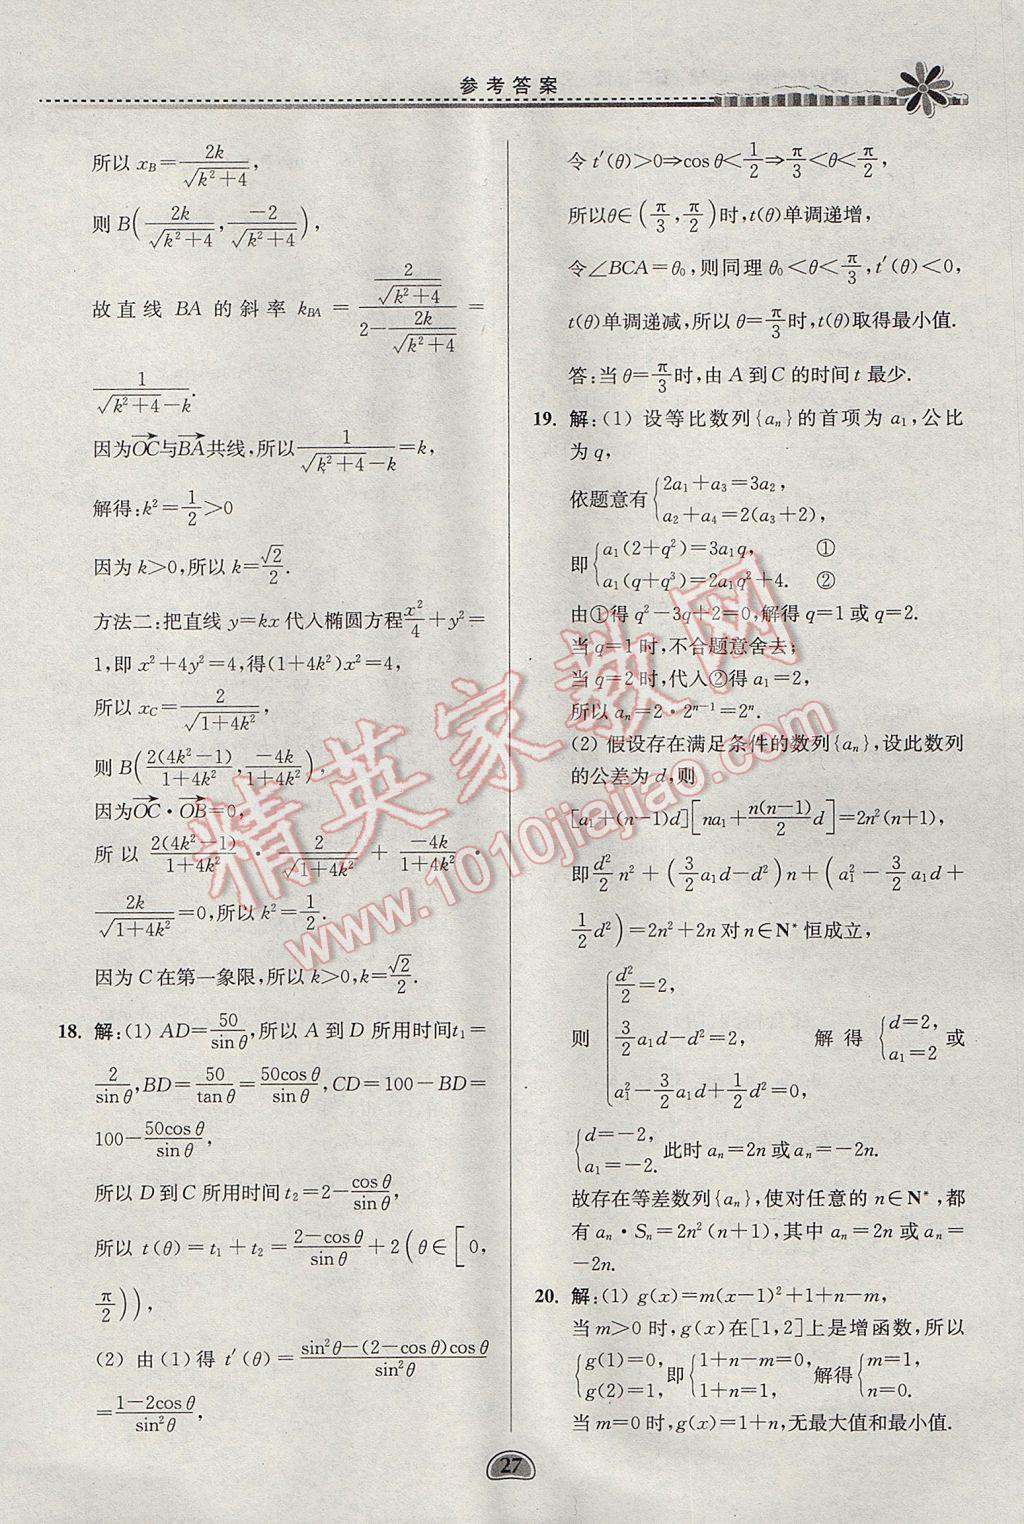 参考答案
所以 x_B = 2k/√(k²+4),
则 B(2k/√(k²+4), -2/√(k²+4)),
故直线 BA 的斜率 k_BA = (2/√(k²+4))/(2-2k/√(k²+4)) =
1/(√(k²+4)-k).
因为OC→与BA→共线,所以 1/(√(k²+4)-k)=k,
解得:k²=1/2>0
因为 k>0,所以 k=√2/2.
方法二:把直线 y=kx 代入椭圆方程x²/4+y²=
1,即 x²+4y²=4,得(1+4k²)x²=4,
所以 x_C=2/√(1+4k²),
则 B(2(4k²-1)/(1+4k²), -4k/(1+4k²)),
因为OC→·OB→=0,
所以 2(4k²-1)/(1+4k²) · 2/√(1+4k²) + -4k/(1+4k²) ·
2k/√(1+4k²)=0,所以 k²=1/2.
因为 C 在第一象限,所以 k>0,k=√2/2.
18. 解:(1) AD=50/sinθ,所以 A 到 D 所用时间t₁=
2/sinθ,BD=50/tanθ=50cosθ/sinθ,CD=100-BD=
100-50cosθ/sinθ,
所以 D 到 C 所用时间 t₂=2-cosθ/sinθ,
所以 t(θ)=t₁+t₂=(2-cosθ)/sinθ+2(θ∈[θ₀,
π/2)),
(2) 由(1)得 t′(θ)=(sin²θ-(2-cosθ)cosθ)/sin²θ
=(1-2cosθ)/sin²θ,
令 t′(θ)>0⇒cosθ<1/2⇒π/3<θ<π/2,
所以θ∈(π/3,π/2)时,t(θ)单调递增,
令∠BCA=θ₀,则同理 θ₀<θ<π/3,t′(θ)<0,
t(θ)单调递减,所以 θ=π/3时,t(θ)取得最小值.
答:当 θ=π/3时,由 A 到 C 的时间 t 最少.
19. 解:(1) 设等比数列{aₙ}的首项为 a₁,公比
为 q,
依题意有{2a₁+a₃=3a₂, a₂+a₄=2(a₃+2),
即{a₁(2+q²)=3a₁q, ① a₁(q+q³)=2a₁q²+4. ②
由①得 q²-3q+2=0,解得 q=1 或 q=2.
当 q=1 时,不合题意舍去;
当 q=2 时,代入②得 a₁=2,
所以 aₙ=2·2ⁿ⁻¹=2ⁿ.
(2) 假设存在满足条件的数列{aₙ},设此数列
的公差为 d,则
[a₁+(n-1)d][na₁+n(n-1)/2 d]=2n²(n+1),
即d²/2 n²+(3/2 a₁d-d²)n+(a₁²-3/2 a₁d+
1/2 d²)=2n²+2n 对 n∈N* 恒成立,
则 {d²/2=2, 3/2 a₁d-d²=2, a₁²-3/2 a₁d+1/2 d²=0, 解得 {d=2, a₁=2 或
{d=-2, a₁=-2. 此时 aₙ=2n 或aₙ=-2n.
故存在等差数列{aₙ},使对任意的 n∈N*,都
有 aₙ·Sₙ=2n²(n+1),其中 aₙ=2n 或aₙ=
-2n.
20. 解:(1) g(x)=m(x-1)²+1+n-m,
当 m>0 时,g(x)在[1,2]上是增函数,所以
{g(1)=0, g(2)=1, 即{1+n-m=0, 1+n=1, 解得{m=1, n=0.
当 m=0 时,g(x)=1+n,无最大值和最小值.
精英家教网
www.1010jiajiao.com
27